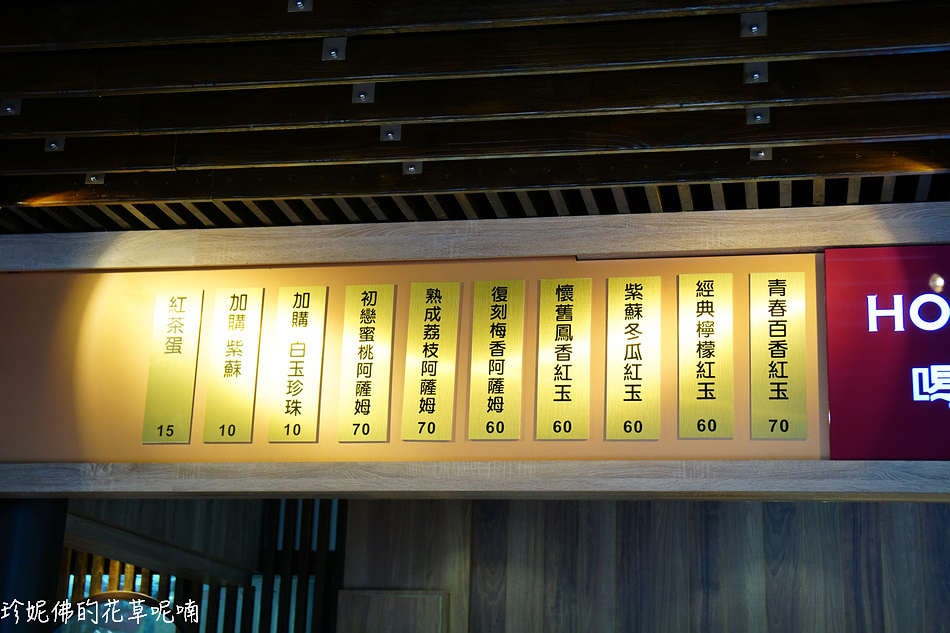 青春百香紅玉 70
經典檸檬紅玉 60
紫蘇冬瓜紅玉 60
懷舊鳳香紅玉 60
復刻梅香阿薩姆 60
熟成荔枝阿薩姆 70
初戀蜜桃阿薩姆 70
加購 白玉珍珠 10
加購 紫蘇 10
紅茶蛋 15
HO
珍妮佛的花草呢喃